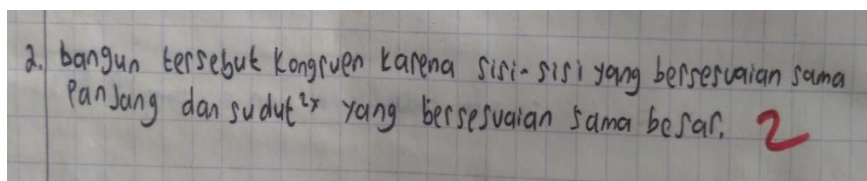 2. bangun tersebut kongruen karena sisi-sisi yang bersesuaian sama
panjang dan sudut²x yang bersesuaian sama besar. 2